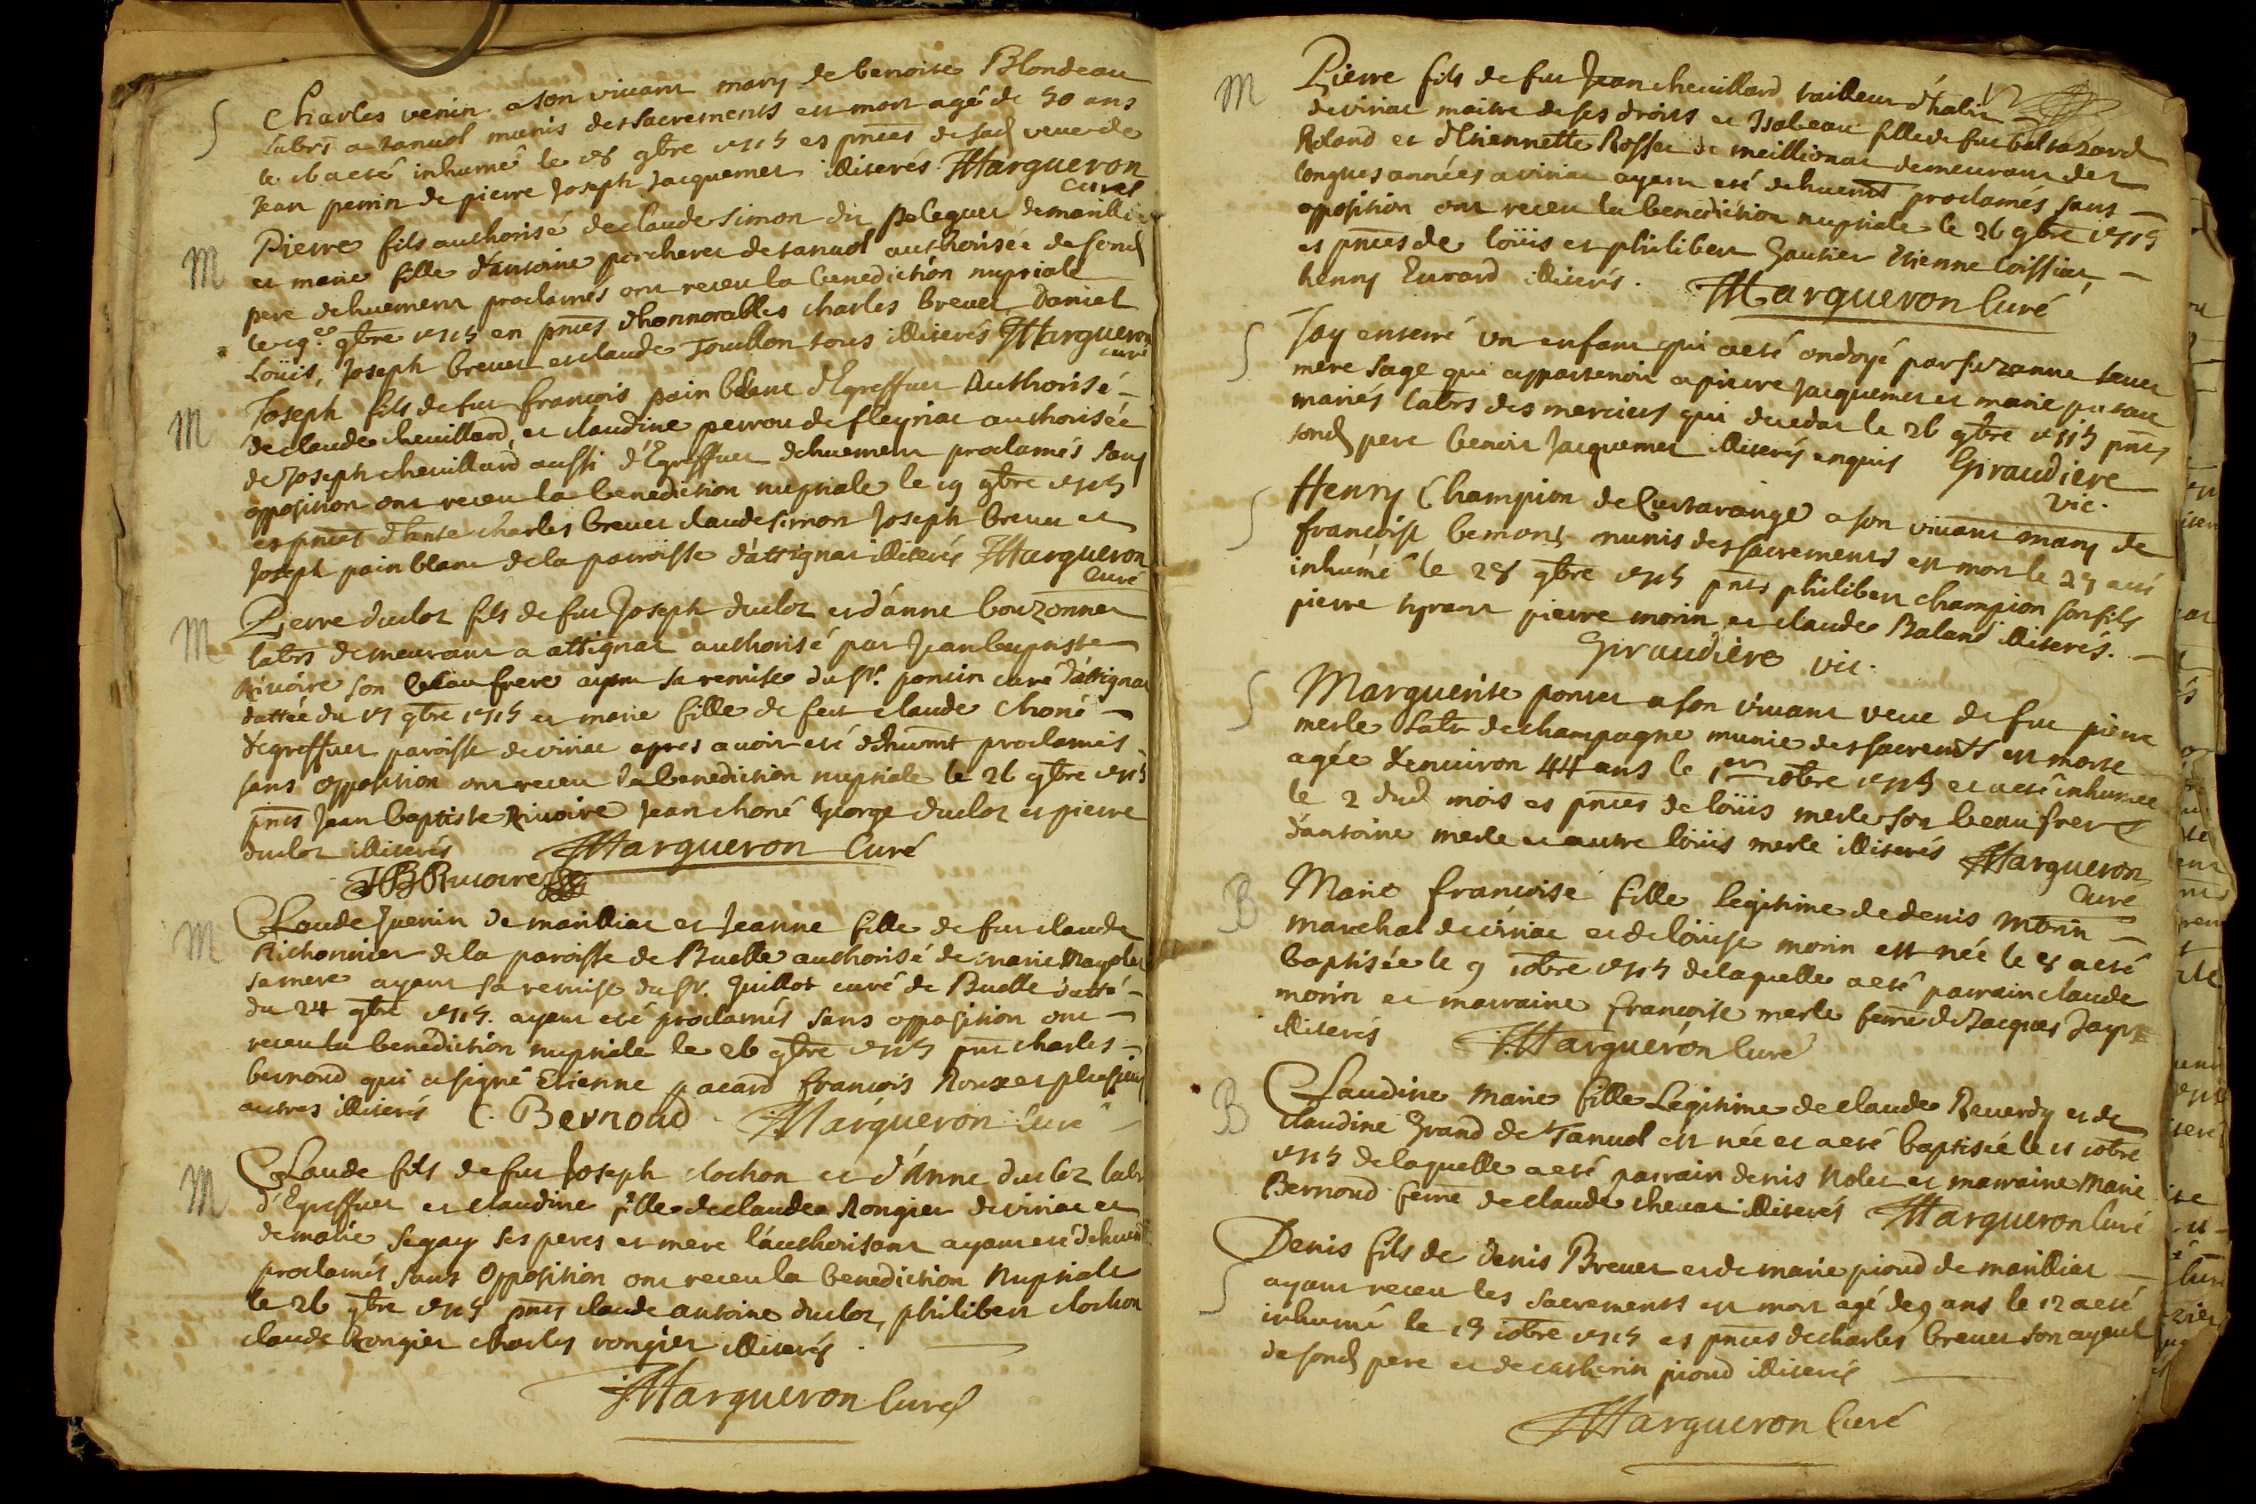 S
Charles venin a son vivant mary de benoite Blondeau
labrs a tanuol munis des sacrements est mort agé de 50 ans
le 16 a eté inhumé le 18 9bre 1715 es pnces de sad veuve de
Jean perrin de pierre Joseph Jacquemet illiterés JMargueron
curé
M
Pierre fils authorisé de claude simon dit poleguet de marilliat
et marie fille d'antoine porcheret de tanuol authorisée de fond
pere dehuement proclamés ont receu la benediction nuptiale
le 19e 9bre 1715 en pnces d'honnorables charles brevet daniel
Loüis, Joseph brevet et claude Touillon tous illiterés JMargueron
curé
M
Joseph fils de fut françois pain blanc d'Egreffuet Authorisé
de claude cheuillard, et claudine perrou de fleyriat authorisée
de Joseph cheuillard aussi d'Egreffuet dehuement proclamés sans
opposition ont receu la benediction nuptiale le 19 9bre 1715
es pnces charles brevet claude simon Joseph brevet et
Joseph pain blanc de la parroisse d'attignat illiterés JMargueron
curé
M
Pierre duclot fils de fut Joseph duclot et d'anne bouzonnet
labrs demeurant a attignat authorisé par Jean baptiste
Rivoire son beau frere ayant sa remise du sr. poncin curé d'attignat
dattée du 17 9bre 1715 et marie fille de feut claude choné
d'egreffuet paroisse de viriat apres avoir eté dehuemt proclamés
sans opposition ont receu la benediction nuptiale le 26 9bre 1715
pnts Jean baptiste Rivoire Jean choné George duclot et pierre
duclot illiterés JMargueron Curé
JBRivoire
M
Claude Juenin de marilliat et Jeanne fille de fut claude
Richonnier de la paroisse de Buelle authorisé de marie Mayolet
sa mere ayant sa remise du sr. Guillot curé de Buelle datté
du 24 9bre 1715. ayant eté proclamés sans opposition ont
receu la benediction nuptiale le 26 9bre 1715 pnt charles
bernoud qui a signé Etienne pacard françois Roux et plusieurs
autres illiterés C. Bernoud JMargueron Curé
M
Claude fils de fut Joseph clochon et d'Anne duclot labr
d'Egreffuet et claudine fille de claude Rongier de viriat et
de marie segay ses peres et mere l'authorisant ayant eté dehuemt
proclamés sans Opposition ont receu la benediction Nuptiale
le 26 9bre 1715 pnts claude antoine duclot, philibert clochon
claude Rongier charles rongier illiterés.
JMargueron Curé
12
M
Pierre fils de fut Jean cheuillard tailleur d'habit
de viriat maitre de ses droits et Isabeau fille de fut baltazard
Roland et d'Etiennette Rosset de meillionat demeurant dez
longues années a viriat ayant eté dehuemt proclamés sans
opposition ont receu la benediction nuptiale le 26 9bre 1715
es pnces de loüis et philibert Gautier Etienne Coissiat,
henry Evrard illiterés. JMargueron Curé
S
Jay enterré un enfant qui a eté ondoyé par suzanne
mere sage qui appartenoit a pierre Jacquemet et marie
mariés labrs des merciers qui deceda le 26 9bre 1715 pnts
sond pere benoit Jacquemet illiterés enquis Giraudiere
vic.
S
Henry Champion de Curtarange a son vivant mary de
françoise bemont munis des sacrements est mort le 27 a eté
inhumé le 28 9bre 1715 pnts philibert champion son fils
pierre tyrant pierre morin et claude Baland illiterés.
Giraudiere vic.
S
Marguerite ponset a son vivant veuve de fut pierre
merle labr de champagne munie des sacremts est morte
agée d'environ 44 ans le 1er 10bre 1715 et a eté inhumée
le 2 dud mois es pnces de loüis merle son beau frere
d'antoine merle et autre loüis merle illiterés JMargueron
Curé
B
Marie françoise fille legitime de denis Morin
marechal de viriat et de loüise morin est née le 8 a eté
baptisée le 9 10bre 1715 de laquelle a eté parrain claude
morin et marraine françoise merle feme de Jacques Jayr
illiterés JMargueron Curé
B
Claudine Marie fille Légitime de claude Reverdy et de
claudine Grand de Tanuol est née et a eté baptisée le 11 10bre
1715 de laquelle a eté parrain denis Nolet et marraine Marie
Bernoud feme de claude chevat illiterés JMargueron Curé
S
Denis fils de denis Brevet et de marie pioud de marilliat
ayant receu les sacrements est mort agé de 9 ans le 12 a eté
inhumé le 13 10bre 1715 es pnces de charles brevet son ayeul
de sond pere et de catherin pioud illiterés
JMargueron Curé